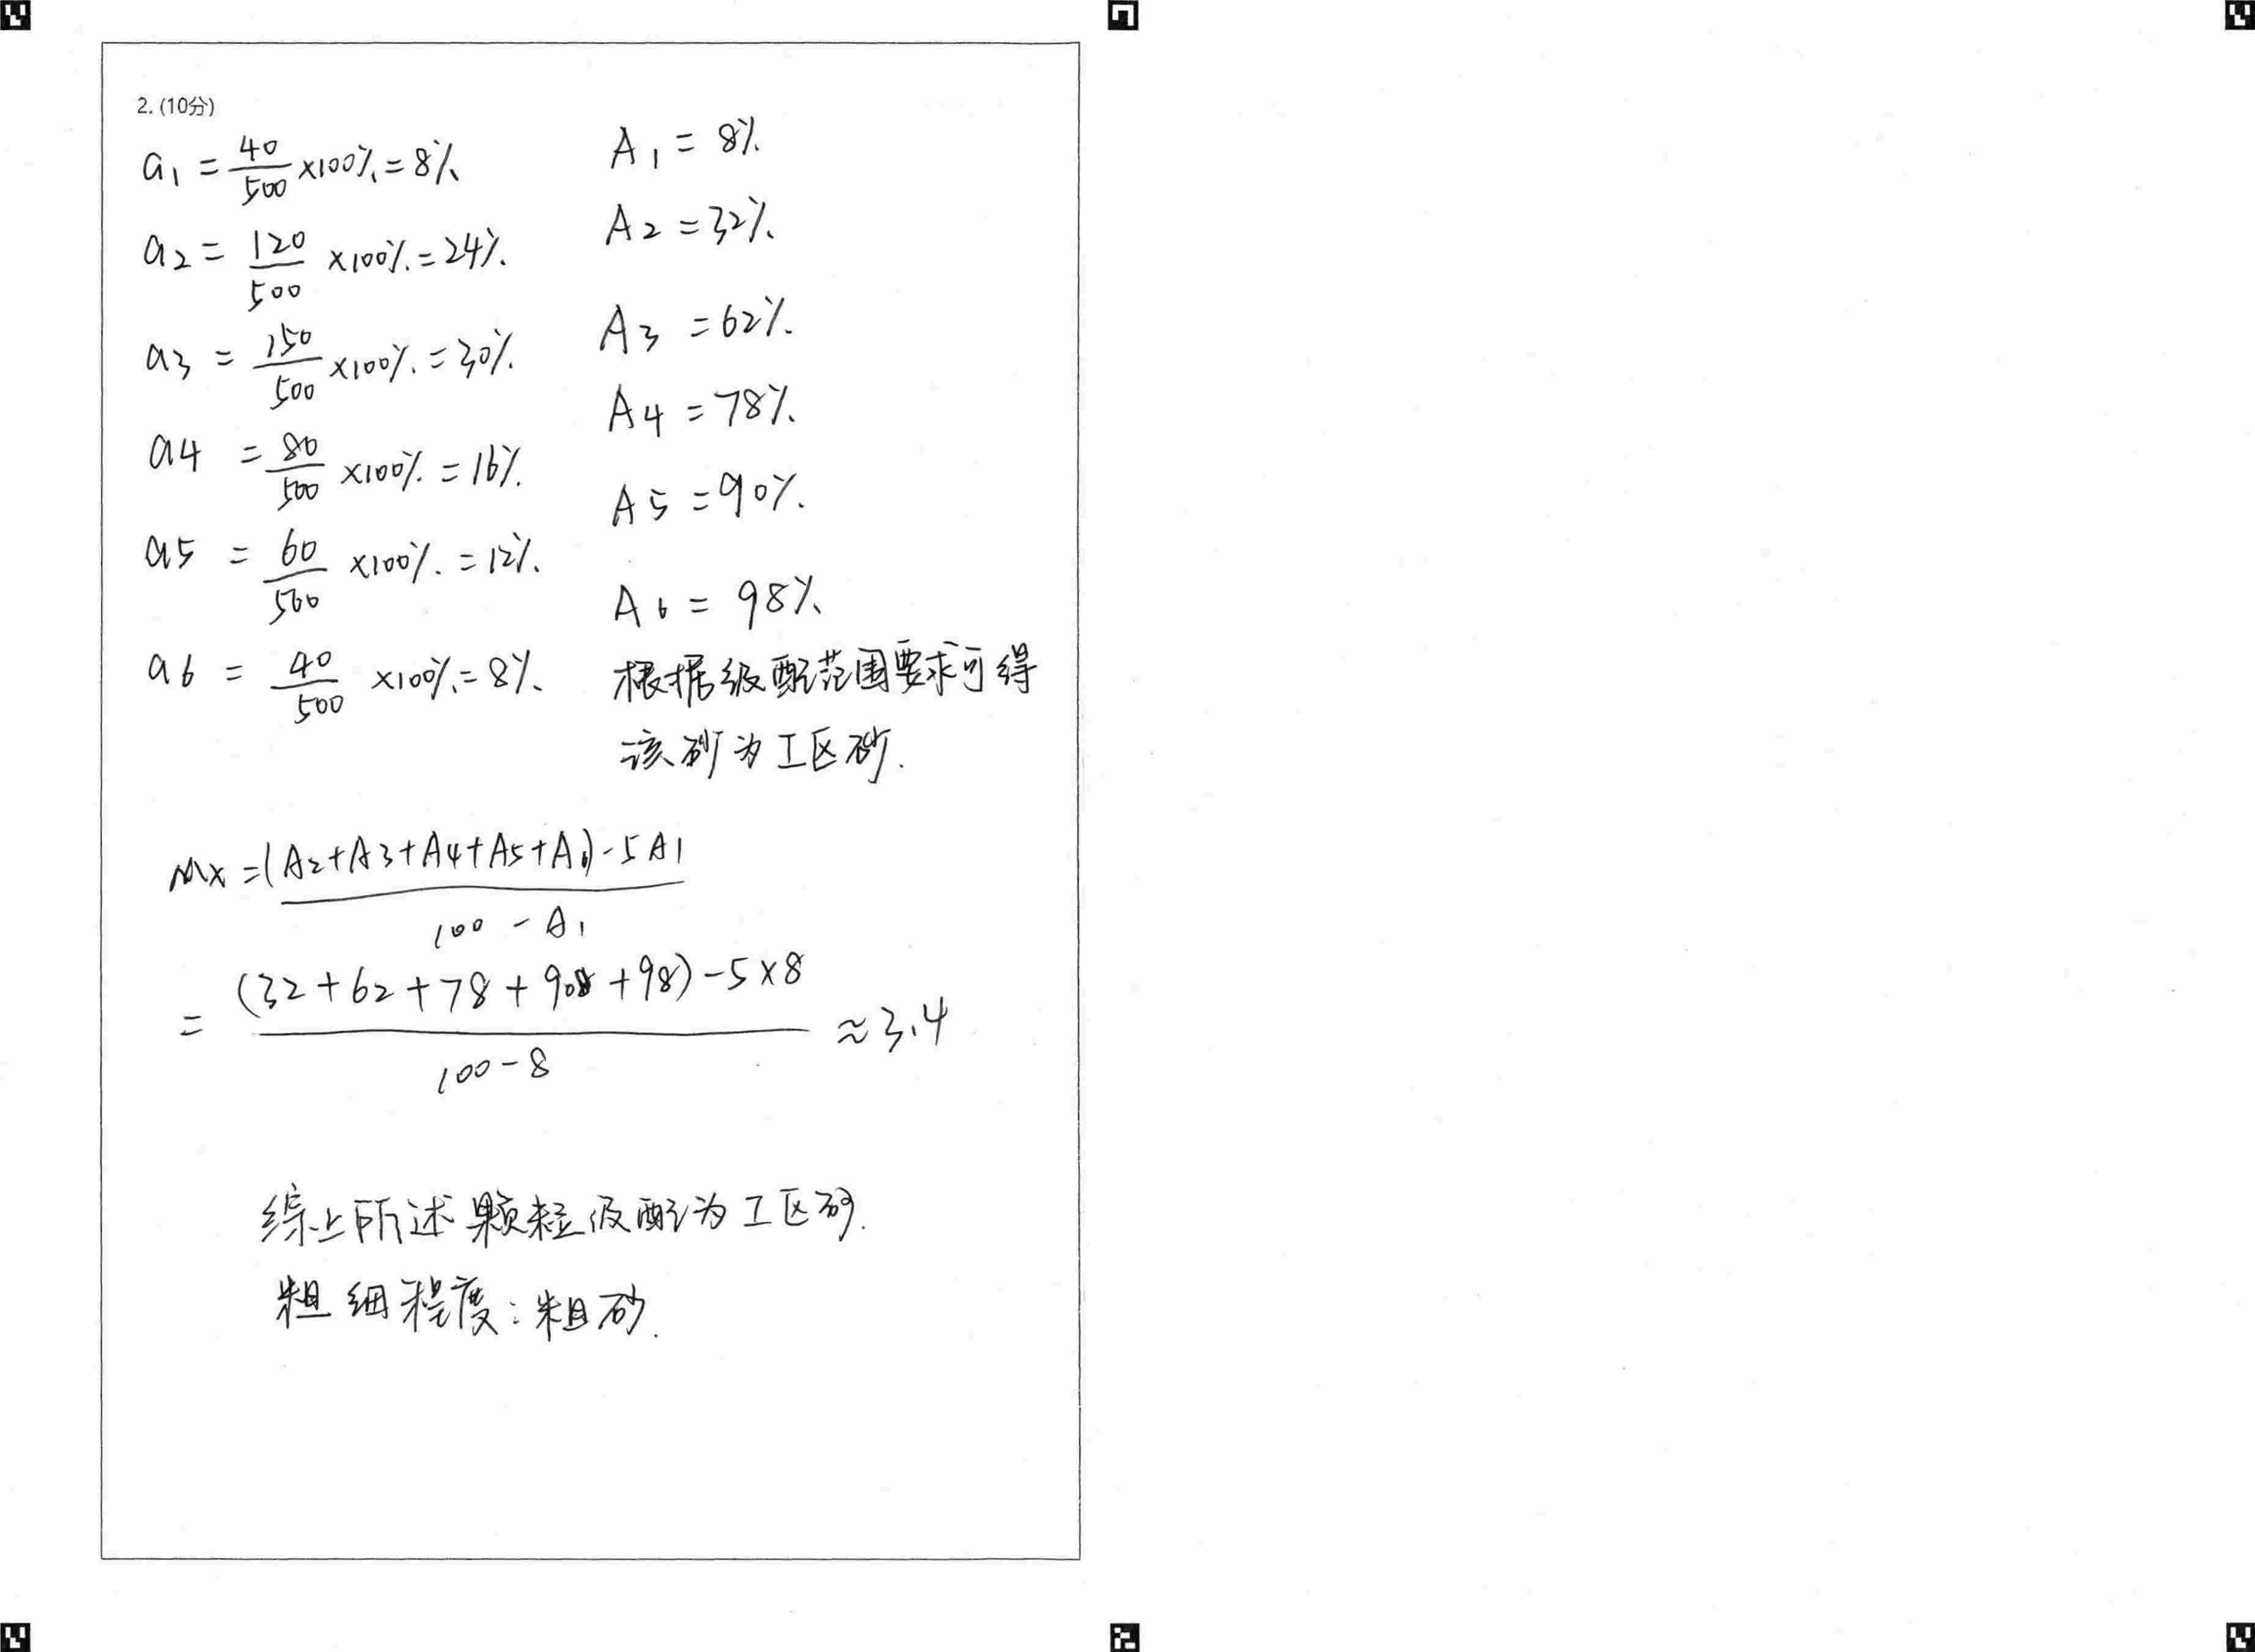 2. (10分)
a1 = 40/500 ×100% = 8%
a2 = 120/500 ×100% = 24%
a3 = 150/500 ×100% = 30%
a4 = 80/500 ×100% = 16%
a5 = 60/500 ×100% = 12%
a6 = 40/500 ×100% = 8%
A1 = 8%
A2 = 32%
A3 = 62%
A4 = 78%
A5 = 90%
A6 = 98%
根据级配范围要求可得
该砂为I区砂.
Mx = (A2+A3+A4+A5+A6)-5A1 / 100-A1
= (32+62+78+90+98)-5×8 / 100-8 ≈3.4
综上所述颗粒级配为I区砂.
粗细程度:粗砂.